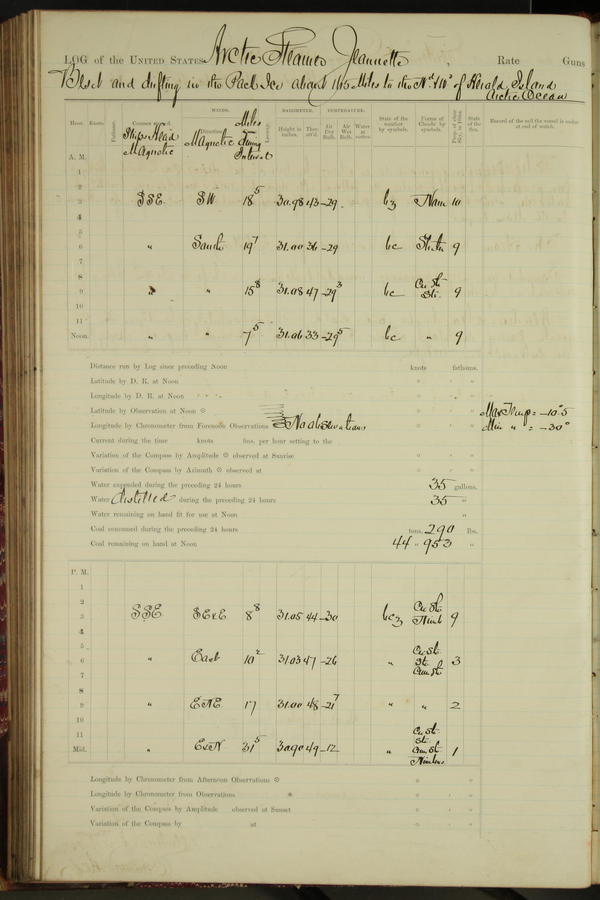 LOG of the UNITED STATES Arctic Steamer Jeannette, Rate Guns
Beset and drifting in the Pack Ice about 165 Miles to the Nd & Wd of Herald Island
Arctic Ocean
WINDS. BAROMETER. TEMPERATURE.
Hour. Knots. Fathoms. Courses steered. Direction Leeway. Height in inches. Ther. att'd. Air Dry Bulb. Air Wet Bulb. Water at surface. State of the weather by symbols. Forms of Clouds by symbols. Prop. of clear Sky, in 10ths. State of the Sea. Record of the sail the vessel is under at end of watch.
Ships Head Magnetic Magnetic Miles during Interval
A. M.
1
2
3 SSE SW 18 5 30.98 43 -29. bz None 10
4
5
6 " South 19 7 31.00 36 -29 bc Strat 9
7
8
9 " " 15 8 31.08 47 -29 3 bc Cu. St. Str. 9
10
11
Noon. " " 7 5 31.06 33 -29 5 bc " 9
Distance run by Log since preceding Noon knots fathoms.
Latitude by D. R. at Noon
Longitude by D. R. at Noon
Latitude by Observation at Noon Max Temp = -10°5
Longitude by Chronometer from Forenoon Observations No observations Min " = -30°
Current during the time knots fms. per hour setting to the
Variation of the Compass by Amplitude observed at Sunrise
Variation of the Compass by Azimuth observed at
Water expended during the preceding 24 hours 35 gallons.
Water distilled during the preceding 24 hours 35 "
Water remaining on hand fit for use at Noon "
Coal consumed during the preceding 24 hours tons, 290 lbs.
Coal remaining on hand at Noon 44 " 953 "
P. M.
1
2
3 SSE SE x E 8 8 31.05 44 -30 bcz Cu. St. Nimb 9
4
5
6 " East 10 2 31.03 47 -26 " Cu. St. St. Cum. St. 3
7
8
9 " ENE 17 31.00 48 -21 7 " " 2
10
11
Mid. " E x N 31 5 30.90 49 -12 " Cu. St. St. Cum. St. Nimbus 1
Longitude by Chronometer from Afternoon Observations
Longitude by Chronometer from Observations
Variation of the Compass by Amplitude observed at Sunset
Variation of the Compass by at